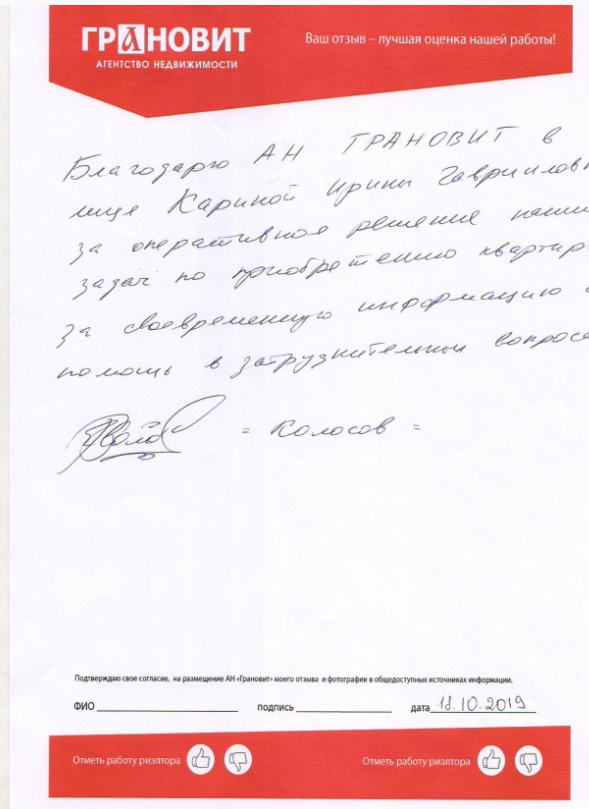 ГРАНОВИТ
АГЕНТСТВО НЕДВИЖИМОСТИ
Ваш отзыв – лучшая оценка нашей работы!
Благодарю АН ГРАНОВИТ в
лице Кариной Ирины Гавриловн
за оперативное решение наши
задач по приобретению квартир
за своевременную информацию
помощь в затруднительных вопроса
= Колосов =
Подтверждаю свое согласие, на размещение АН «Грановит» моего отзыва и фотографии в общедоступных источниках информации.
ФИО подпись дата 18.10.2019
Отметь работу риэлтора Отметь работу риэлтора